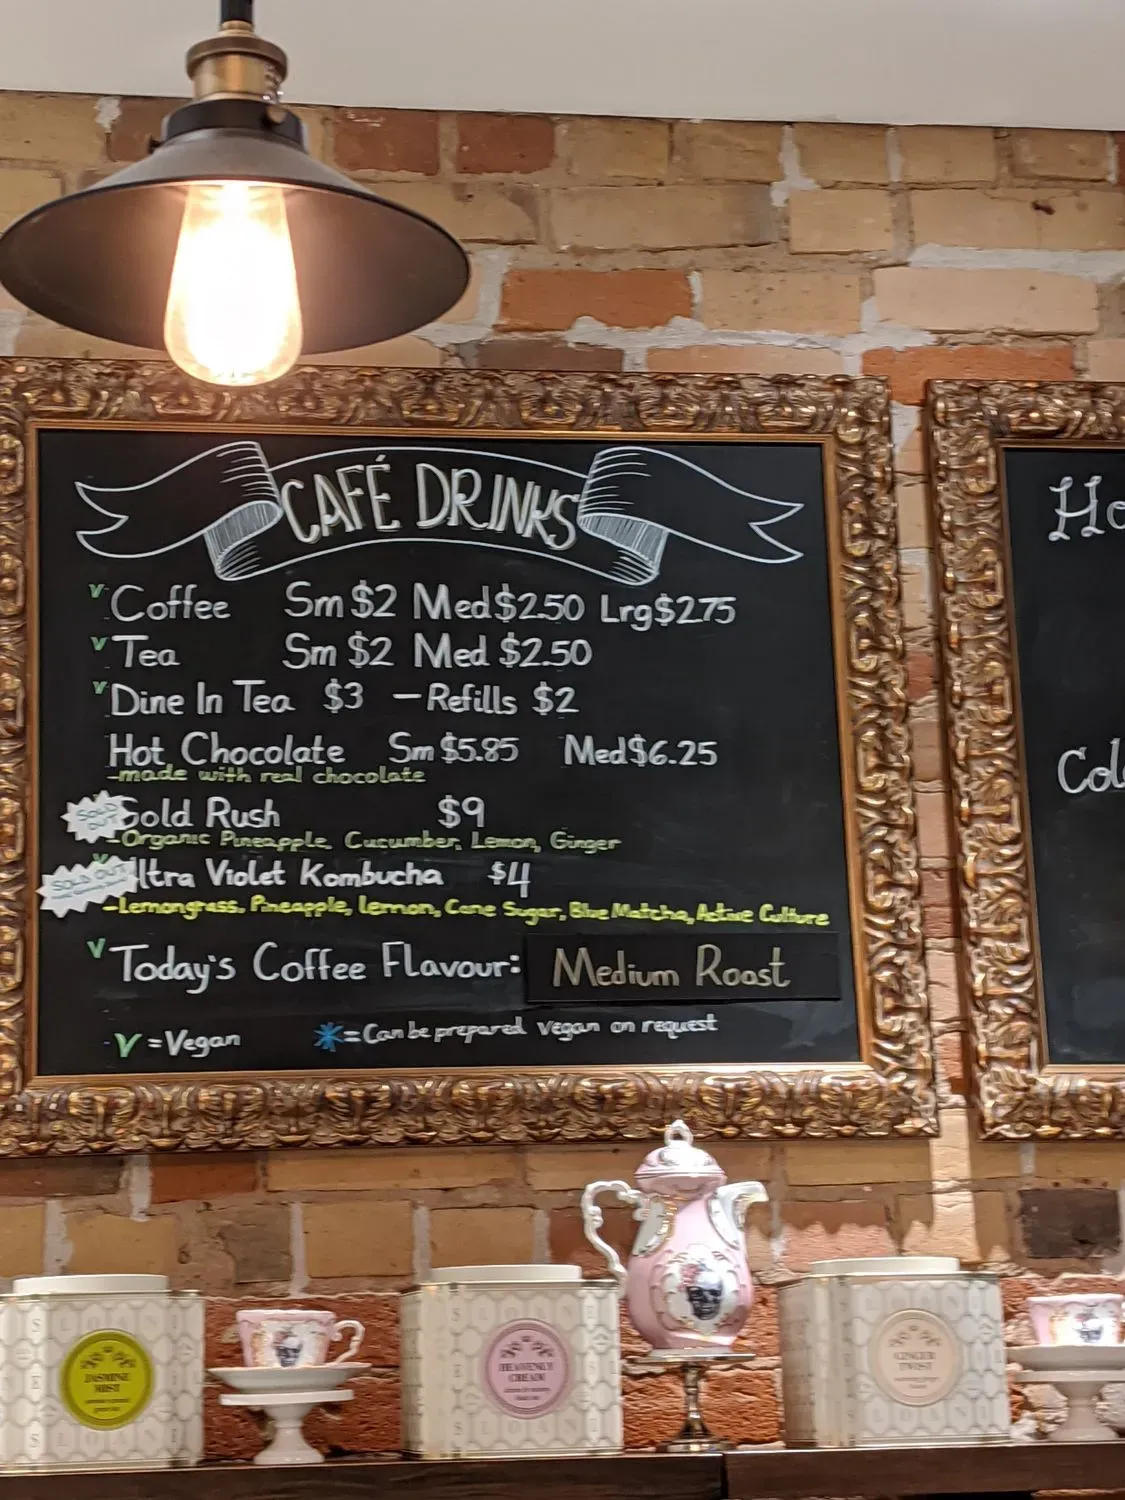 CAFÉ DRINKS
V Coffee Sm $2 Med $2.50 Lrg $2.75
V Tea Sm $2 Med $2.50
V Dine In Tea $3 — Refills $2
Hot Chocolate Sm $5.85 Med $6.25
-made with real chocolate
SOLD OUT
Gold Rush $9
-Organic Pineapple, Cucumber, Lemon, Ginger
SOLD OUT
ltra Violet Kombucha $4
-Lemongrass, Pineapple, lemon, Cane Sugar, Blue Matcha, Active Culture
V Today's Coffee Flavour: Medium Roast
V = Vegan * = Can be prepared vegan on request
Ho
Col
JASMINE
MIST
HEAVENLY
CREAM
GINGER
TWIST
SLOANE
SLOANE
SLOANE